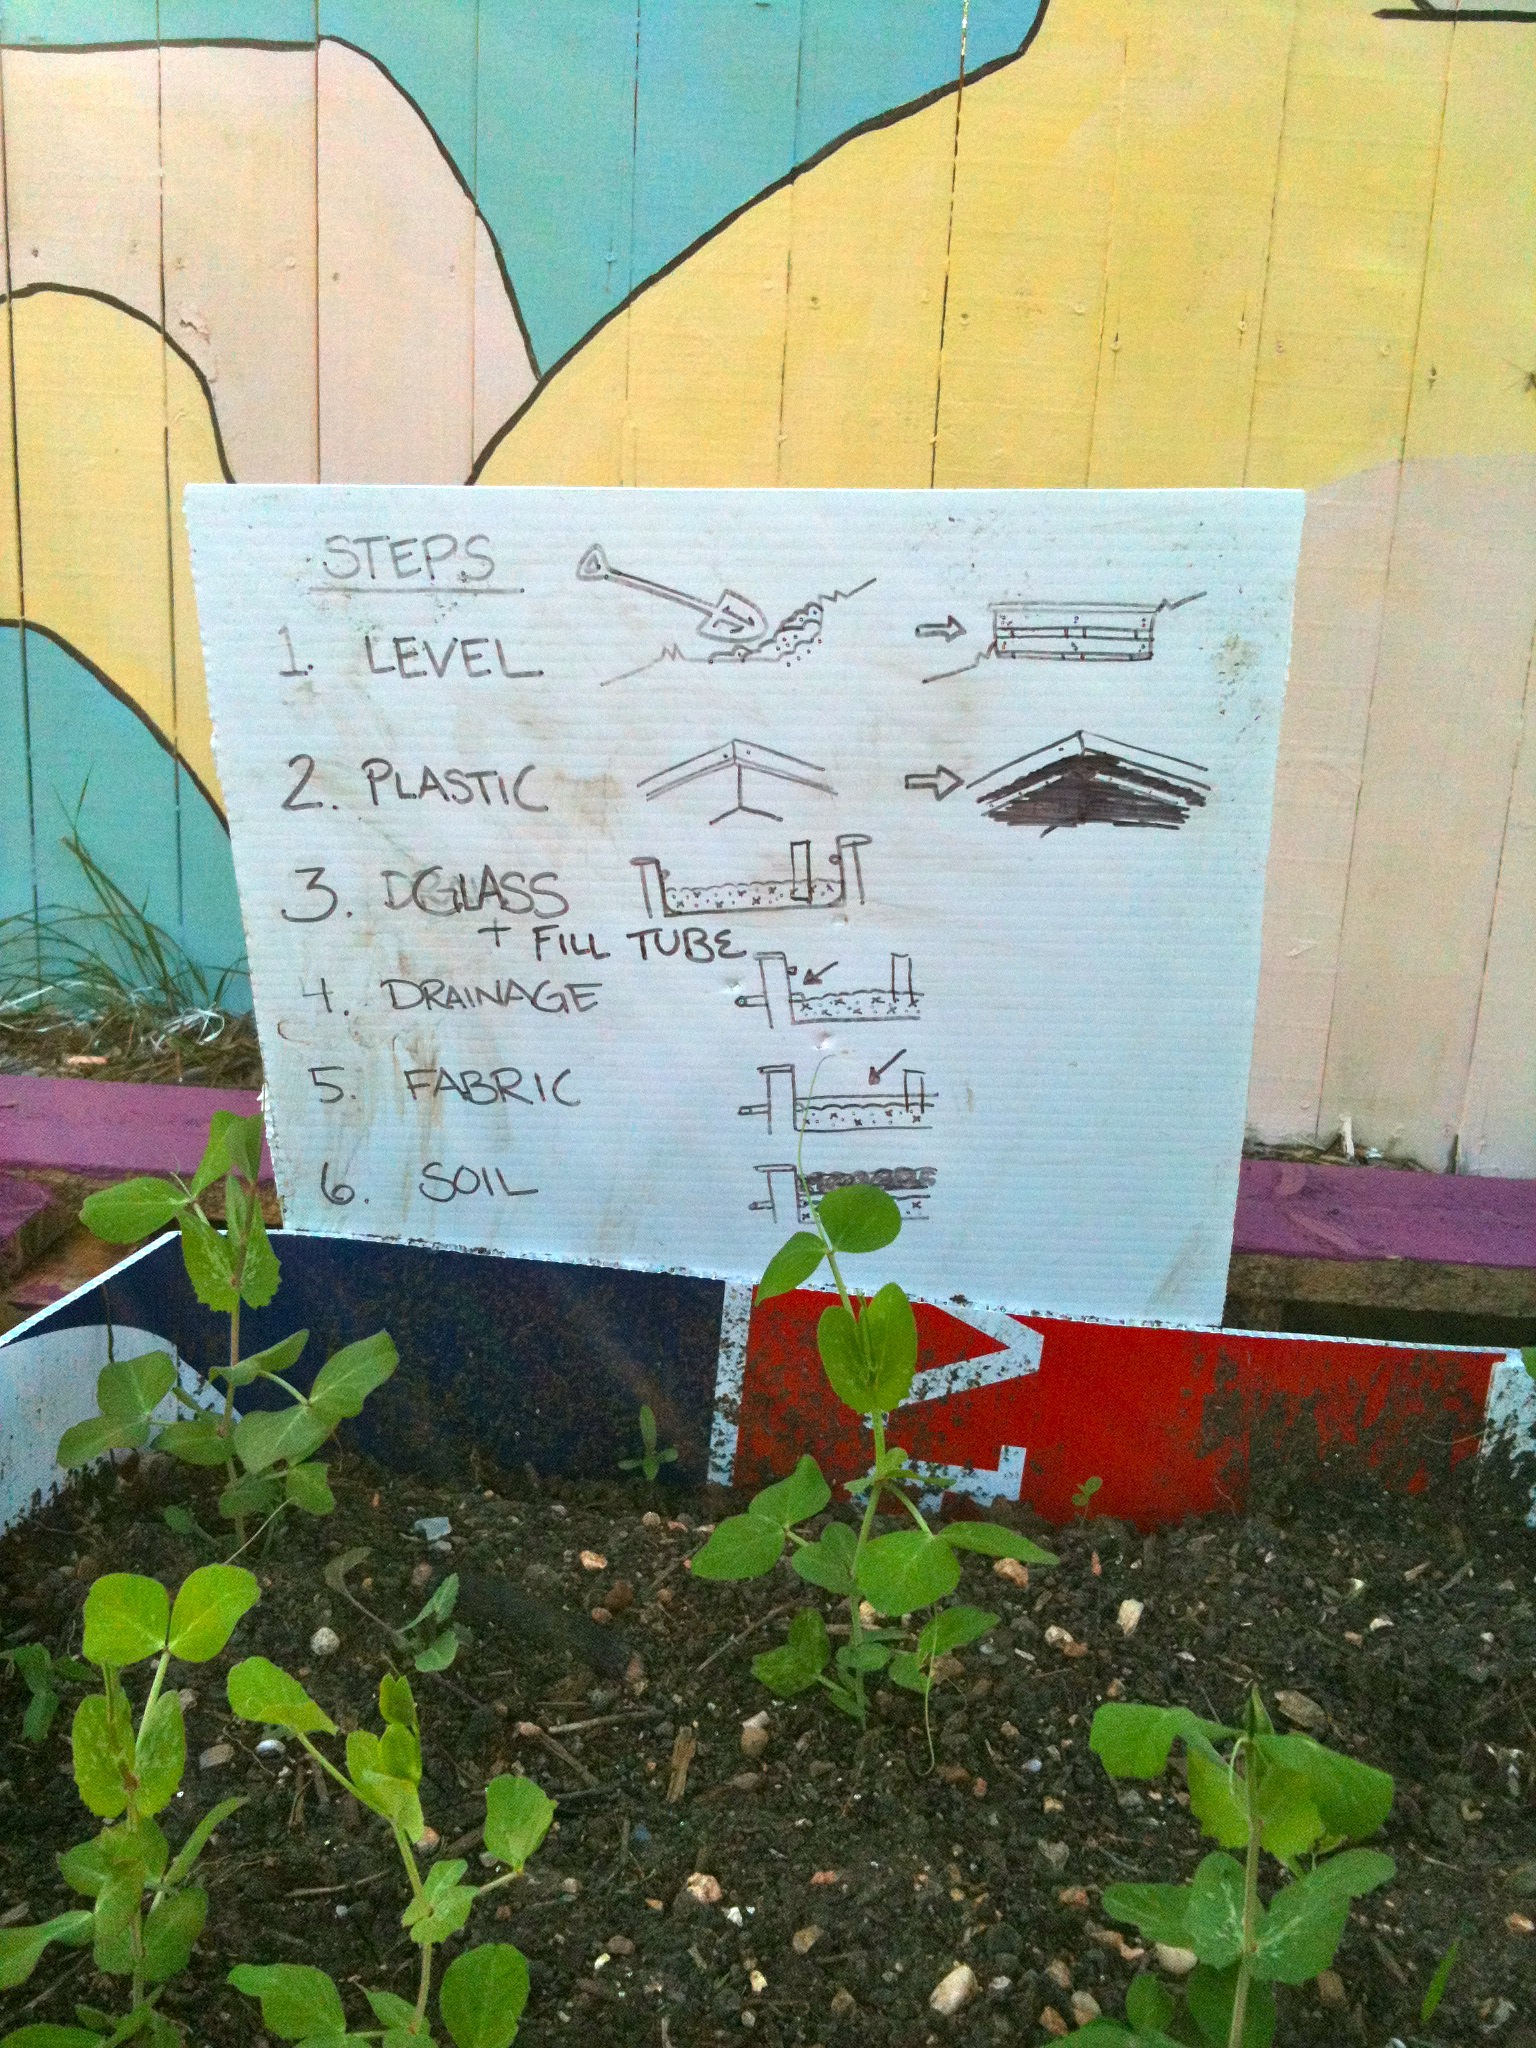 STEPS
1. LEVEL
2. PLASTIC
3. GLASS
+ FILL TUBE
4. DRAINAGE
5. FABRIC
6. SOIL